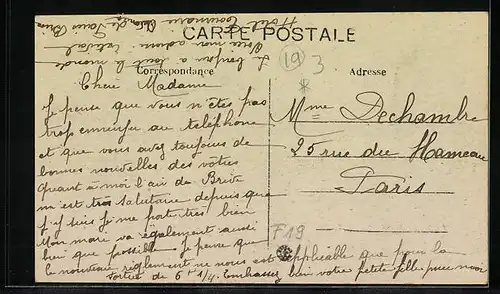 CARTE POSTALE
Correspondance
Adresse
19
3
Chère Madame
Je pense que vous n'êtes pas
trop ennuyée au téléphone
et que vous avez toujours de
bonnes nouvelles des vôtres
Quant à moi l'air de Brive
m'est très salutaire depuis que
j'y suis je me porte très bien
Mon mari va également aussi
bien que possible Je pense que
le nouveau règlement ne nous est applicable que pour la
sortie de 6h 1/4. Embrassez bien votre petite fille pour moi
Le bonjour à tout le monde
Voici mon adresse:
Hôtel
Mme Dechambre
25 rue du Hameau
Paris
F19